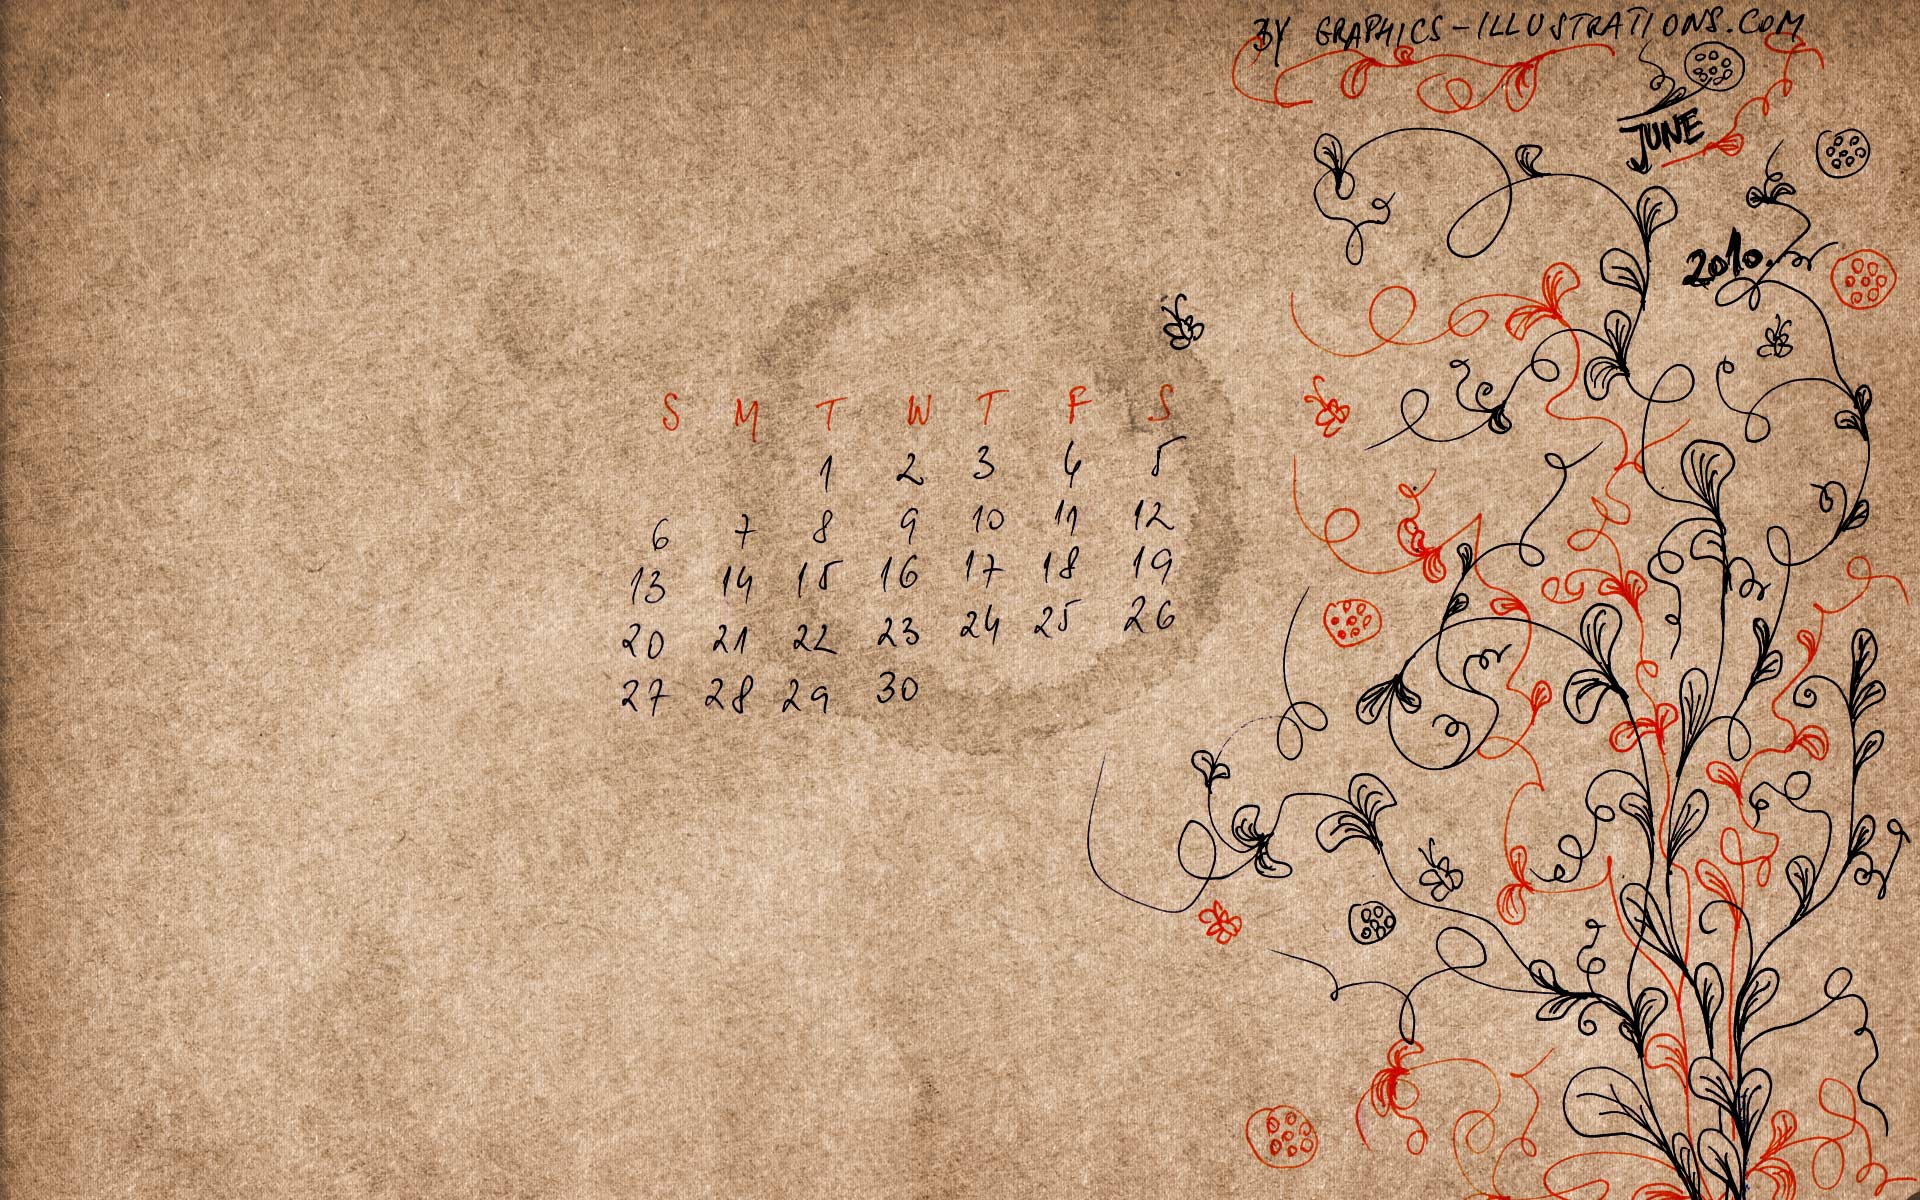 BY GRAPHICS-ILLUSTRATIONS.COM
JUNE
2010.
S M T W T F S
1 2 3 4 5
6 7 8 9 10 11 12
13 14 15 16 17 18 19
20 21 22 23 24 25 26
27 28 29 30